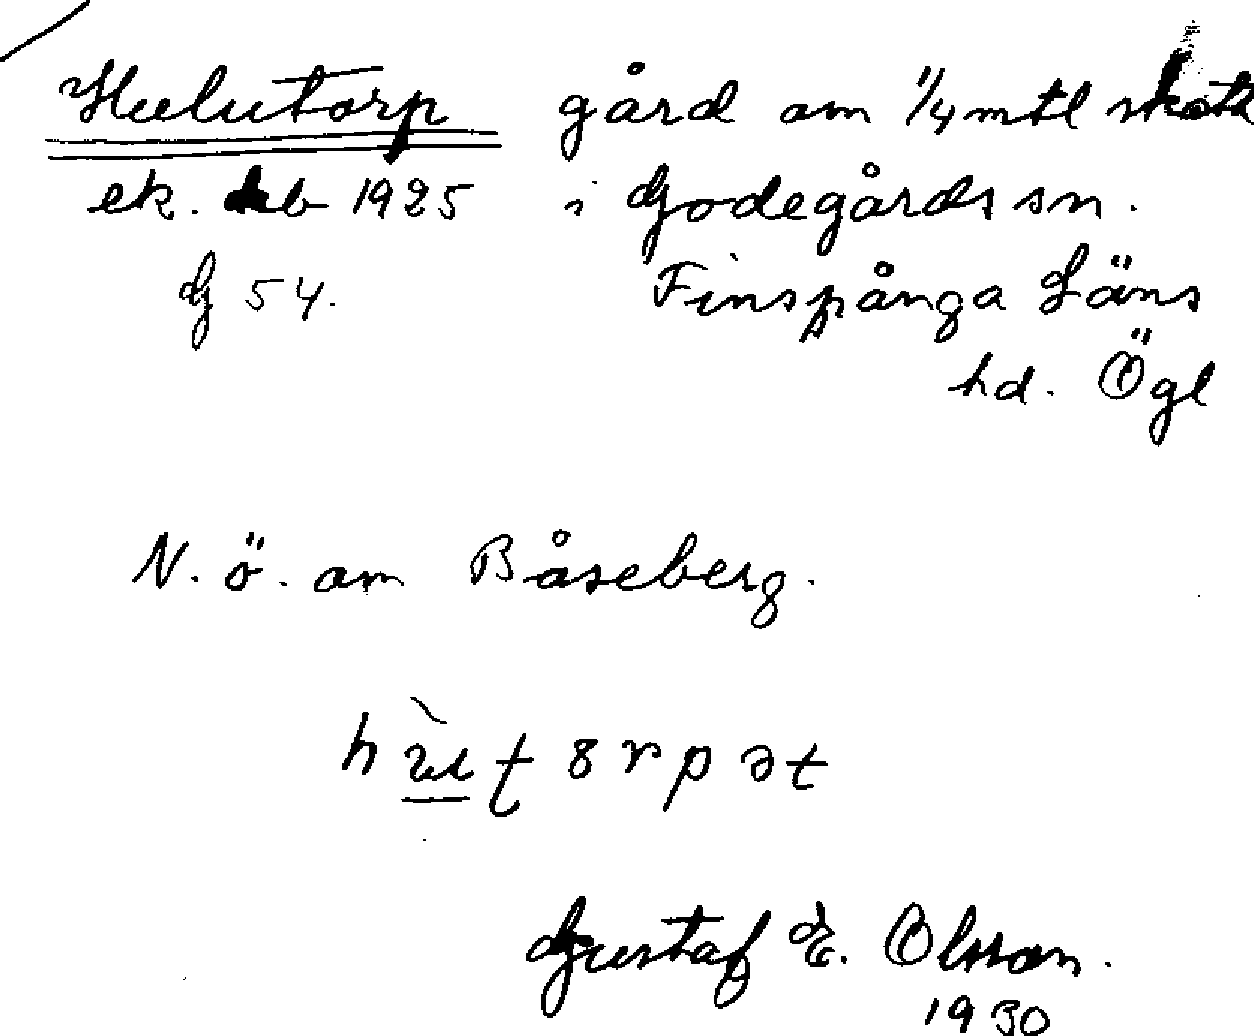 Hulutorp gård om 1/4 mtl skatte
ek. kb 1925 i Godegårds sn.
G 54. Finspånga Läns
hd. Ögl
N. ö. om Båseberg.
Gustaf E. Olsson.
1930